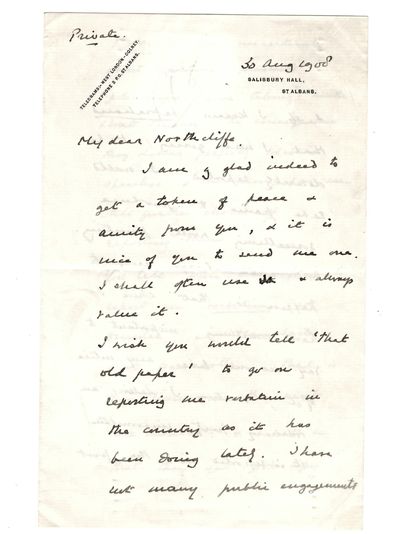 Private.
TELEGRAMS, WEST, LONDON-COLNEY.
TELEPHONE 5 P.O. ST ALBANS.
30 Aug 1908
SALISBURY HALL,
ST ALBANS.
My dear Northcliffe.
I am glad indeed to
get a token of peace &
amity from you, & it is
nice of you to send me one.
I shall often use it & always
value it.
I wish you would tell 'that
old paper' to go on
reporting me verbatim in
the country as it has
been doing lately. I have
not many public engagements